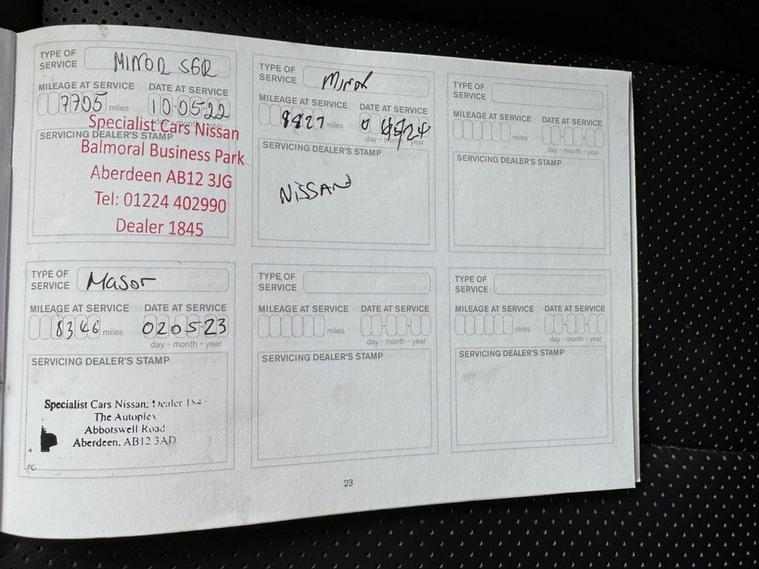 TYPE OF SERVICE MINOR SGR
MILEAGE AT SERVICE DATE AT SERVICE
7705 miles 10 05 22
day - month - year
SERVICING DEALER'S STAMP
Specialist Cars Nissan
Balmoral Business Park
Aberdeen AB12 3JG
Tel: 01224 402990
Dealer 1845
TYPE OF SERVICE Minor
MILEAGE AT SERVICE DATE AT SERVICE
8827 miles
day - month - year
SERVICING DEALER'S STAMP
NISSAN
TYPE OF SERVICE
MILEAGE AT SERVICE DATE AT SERVICE
miles
day - month - year
SERVICING DEALER'S STAMP
TYPE OF SERVICE Major
MILEAGE AT SERVICE DATE AT SERVICE
8346 miles 02 05 23
day - month - year
SERVICING DEALER'S STAMP
Specialist Cars Nissan: Dealer
The Autoplex
Abbotswell Road
Aberdeen, AB12 3AD
TYPE OF SERVICE
MILEAGE AT SERVICE DATE AT SERVICE
miles
day - month - year
SERVICING DEALER'S STAMP
TYPE OF SERVICE
MILEAGE AT SERVICE DATE AT SERVICE
miles
day - month - year
SERVICING DEALER'S STAMP
23